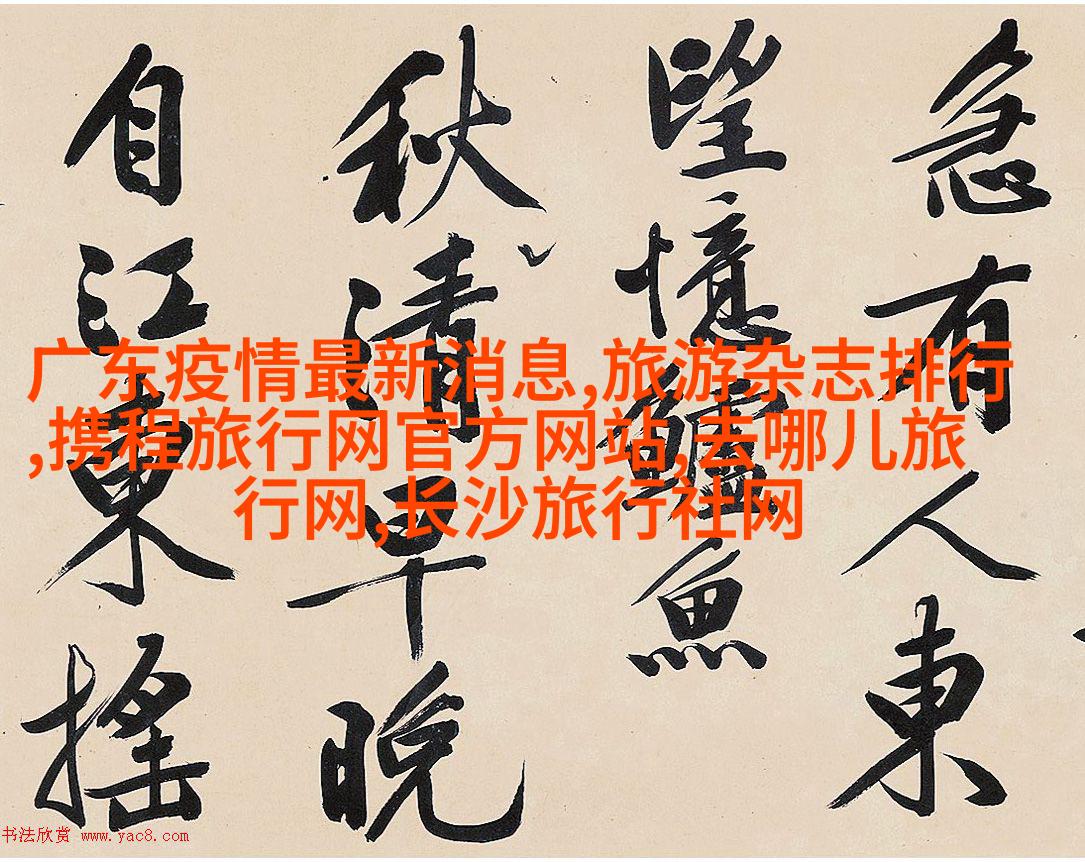 急有人東
望憶鱸魚
秋清早晚
自江東搖
广东疫情最新消息,旅游杂志排行
,携程旅行网官方网站,去哪儿旅
行网,长沙旅行社网
书法欣赏 www.yac8.com